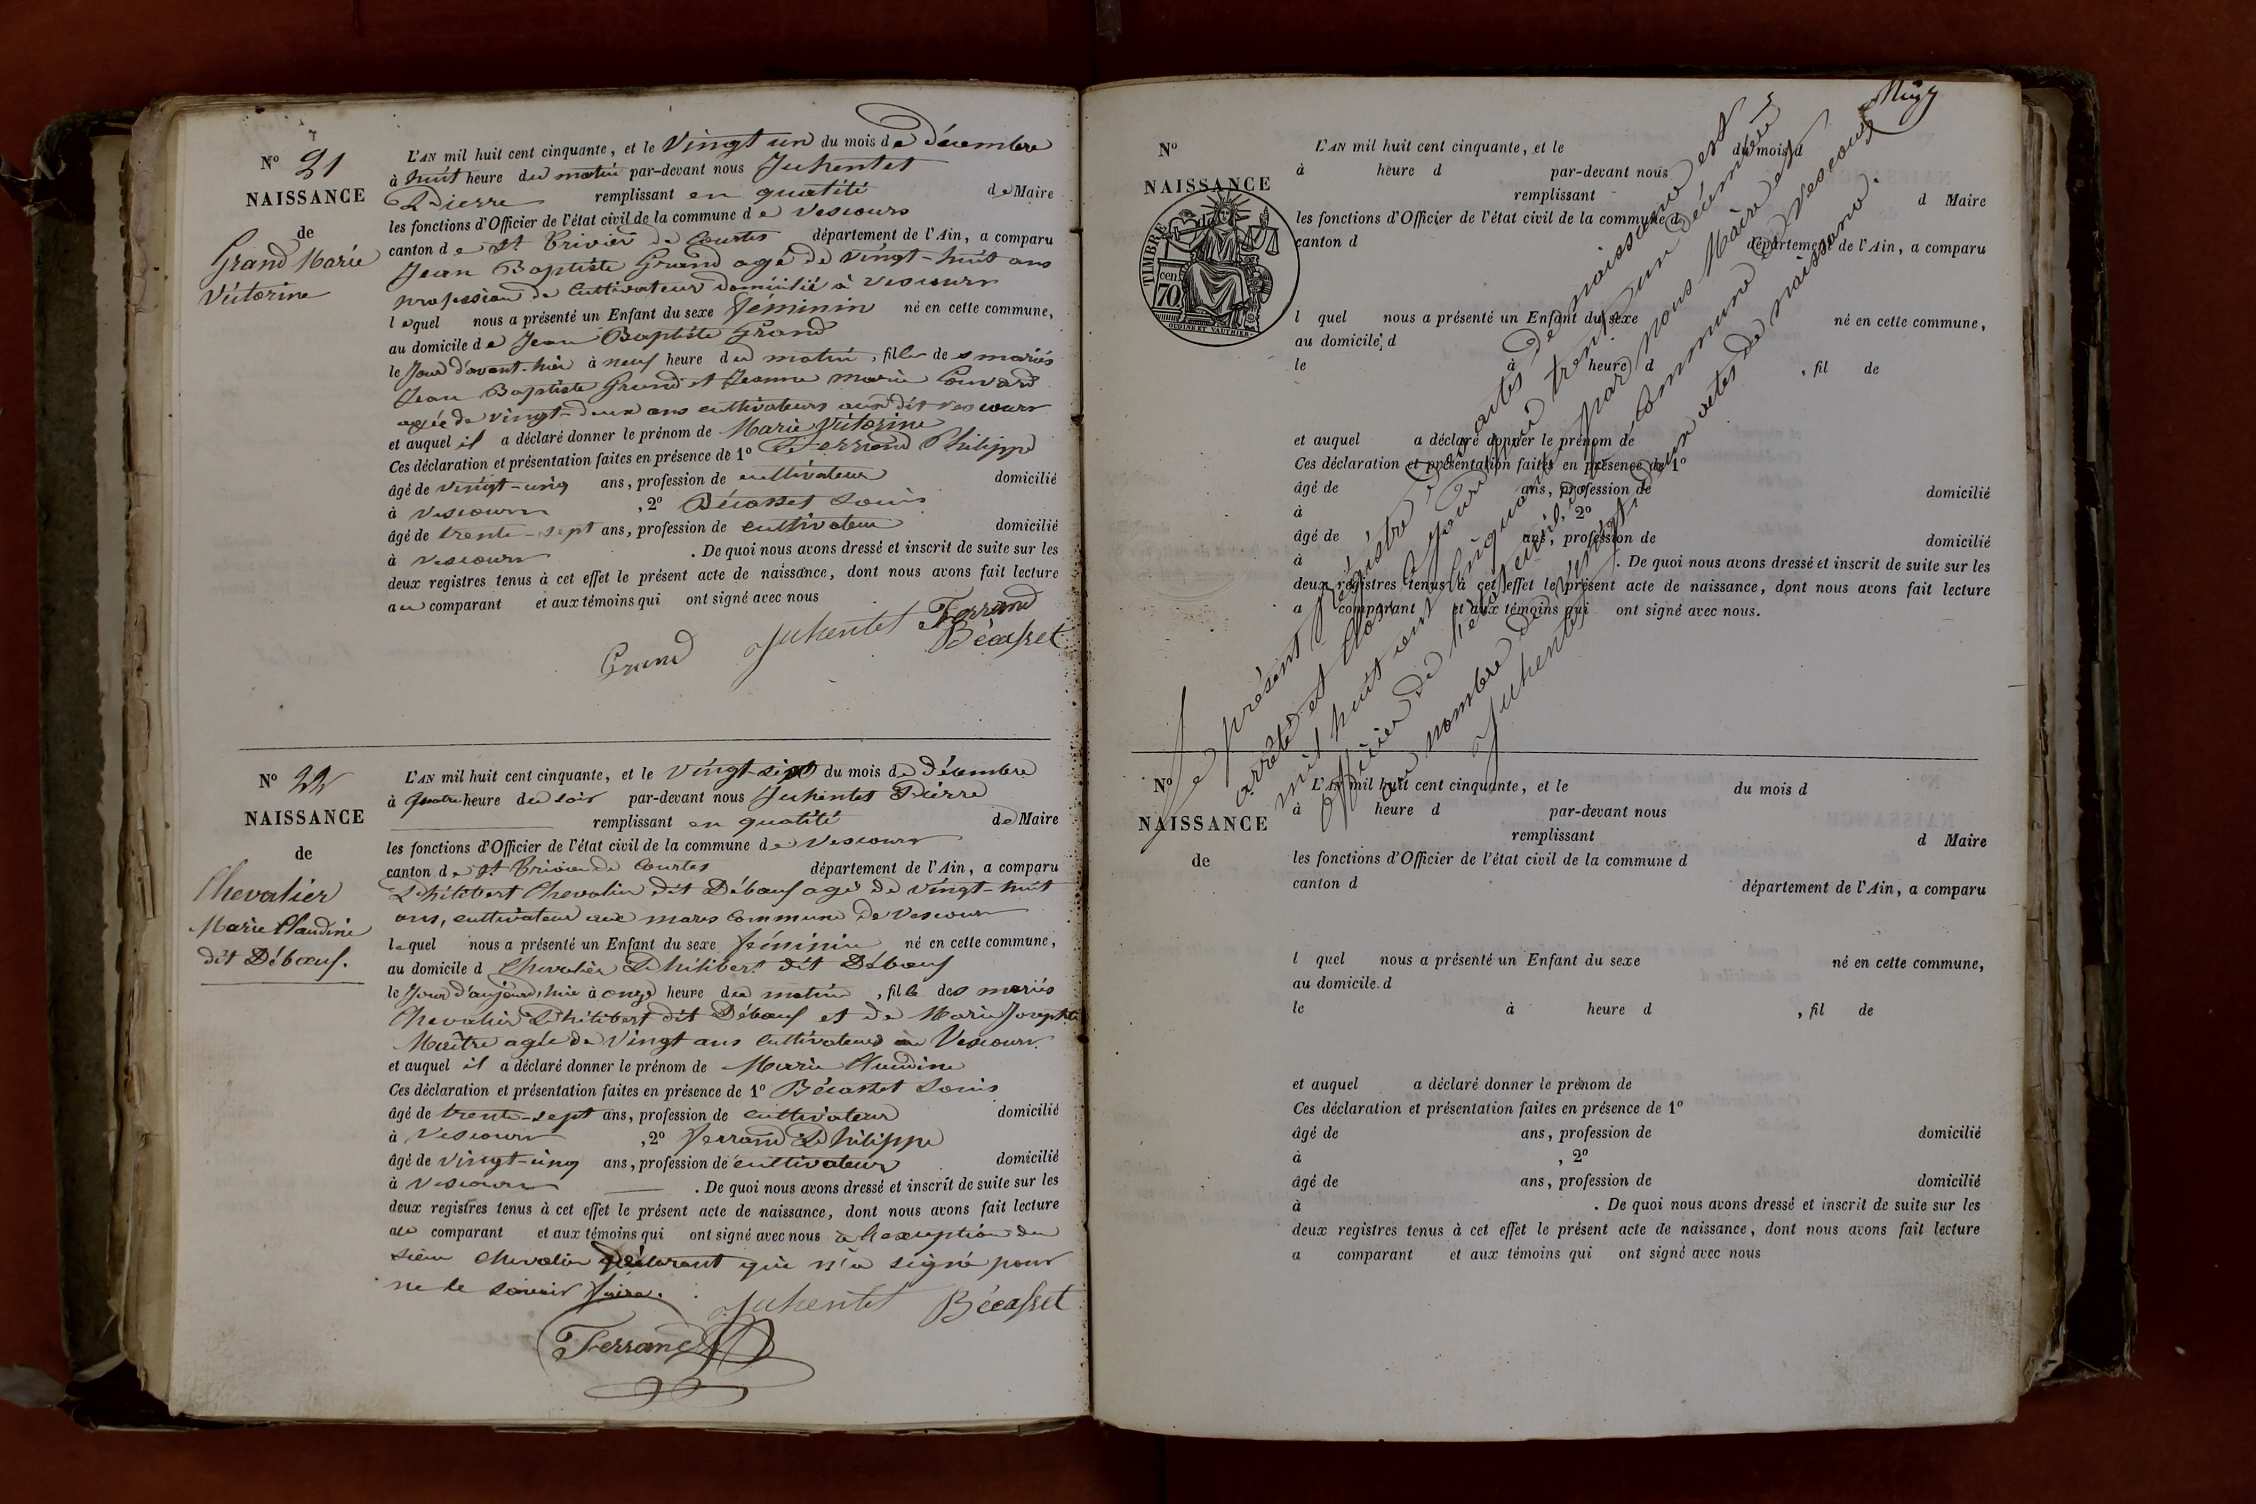 N° 21
NAISSANCE
de
Grand Marie
Victorine
L'AN mil huit cent cinquante, et le Vingt un du mois de décembre
à huit heure du matin par-devant nous Juhentet
Pierre remplissant en qualité de Maire
les fonctions d'Officier de l'état civil de la commune de Vescours
canton de St Trivier de Courtes département de l'Ain, a comparu
Jean Baptiste Grand agé de vingt-huit ans
profession de Cultivateur domicilié à Vescours
lequel nous a présenté un Enfant du sexe féminin né en cette commune,
au domicile de Jean Baptiste Grand
le Jour d'avant-hier à neuf heure du matin, fille des mariés
Jean Baptiste Grand et Jeanne Marie Convard
agée de vingt-deux ans cultivateurs au dit Vescours
et auquel il a déclaré donner le prénom de Marie Victorine
Ces déclaration et présentation faites en présence de 1° Ferrand Philippe
âgé de vingt-cinq ans, profession de cultivateur domicilié
à Vescours, 2° Bécasset Louis
âgé de trente-sept ans, profession de cultivateur domicilié
à Vescours. De quoi nous avons dressé et inscrit de suite sur les
deux registres tenus à cet effet le présent acte de naissance, dont nous avons fait lecture
au comparant et aux témoins qui ont signé avec nous
Grand Juhentet Ferrand
Bécasset
N° 22
NAISSANCE
de
Chevalier
Marie Claudine
dit Débœuf.
L'AN mil huit cent cinquante, et le vingt-sept du mois de Décembre
à quatre heure du soir par-devant nous Juhentet Pierre
remplissant en qualité de Maire
les fonctions d'Officier de l'état civil de la commune de Vescours
canton de St Trivier de Courtes département de l'Ain, a comparu
Philibert Chevalier dit Débœuf agé de vingt-huit
ans, cultivateur aux mares commune de Vescours
lequel nous a présenté un Enfant du sexe féminin né en cette commune,
au domicile d Chevalier Philibert dit Débœuf
le Jour d'aujourd'hui à onze heure du matin, fille des mariés
Chevalier Philibert dit Débœuf et de Marie Josephte
Maître agée de Vingt ans Cultivateurs à Vescours.
et auquel il a déclaré donner le prénom de Marie Claudine
Ces déclaration et présentation faites en présence de 1° Bécasset Louis
âgé de trente-sept ans, profession de cultivateur domicilié
à Vescours, 2° ferrand Philippe
âgé de vingt-cinq ans, profession de cultivateur domicilié
à Vescours. De quoi nous avons dressé et inscrit de suite sur les
deux registres tenus à cet effet le présent acte de naissance, dont nous avons fait lecture
au comparant et aux témoins qui ont signé avec nous à l'exception du
sieur Chevalier déclarant qui n'a signé pour
ne le savoir faire.
Juhentet Bécasset
Ferrand
N°
NAISSANCE
TIMBRE
70 cen
OUDINE ET VAUTHIER
L'AN mil huit cent cinquante, et le du mois d
à heure d par-devant nous
remplissant d Maire
les fonctions d'Officier de l'état civil de la commune d
canton d département de l'Ain, a comparu
l quel nous a présenté un Enfant du sexe né en cette commune,
au domicile d
le à heure d, fil de
et auquel a déclaré donner le prénom de
Ces déclaration et présentation faites en présence de 1°
âgé de ans, profession de domicilié
à, 2°
âgé de ans, profession de domicilié
à. De quoi nous avons dressé et inscrit de suite sur les
deux registres tenus à cet effet le présent acte de naissance, dont nous avons fait lecture
a comparant et aux témoins qui ont signé avec nous.
Le présent Registre des actes de naissance est
arrêté et clos ce Jourd'hui trente un décembre
mil huit cent Cinquante par nous Maire et
officier de l'état civil de la Commune de Vescours
au nombre de vingt deux actes de naissance.
Juhentet
N°
NAISSANCE
de
L'AN mil huit cent cinquante, et le du mois d
à heure d par-devant nous
remplissant d Maire
les fonctions d'Officier de l'état civil de la commune d
canton d département de l'Ain, a comparu
l quel nous a présenté un Enfant du sexe né en cette commune,
au domicile d
le à heure d, fil de
et auquel a déclaré donner le prénom de
Ces déclaration et présentation faites en présence de 1°
âgé de ans, profession de domicilié
à, 2°
âgé de ans, profession de domicilié
à. De quoi nous avons dressé et inscrit de suite sur les
deux registres tenus à cet effet le présent acte de naissance, dont nous avons fait lecture
a comparant et aux témoins qui ont signé avec nous